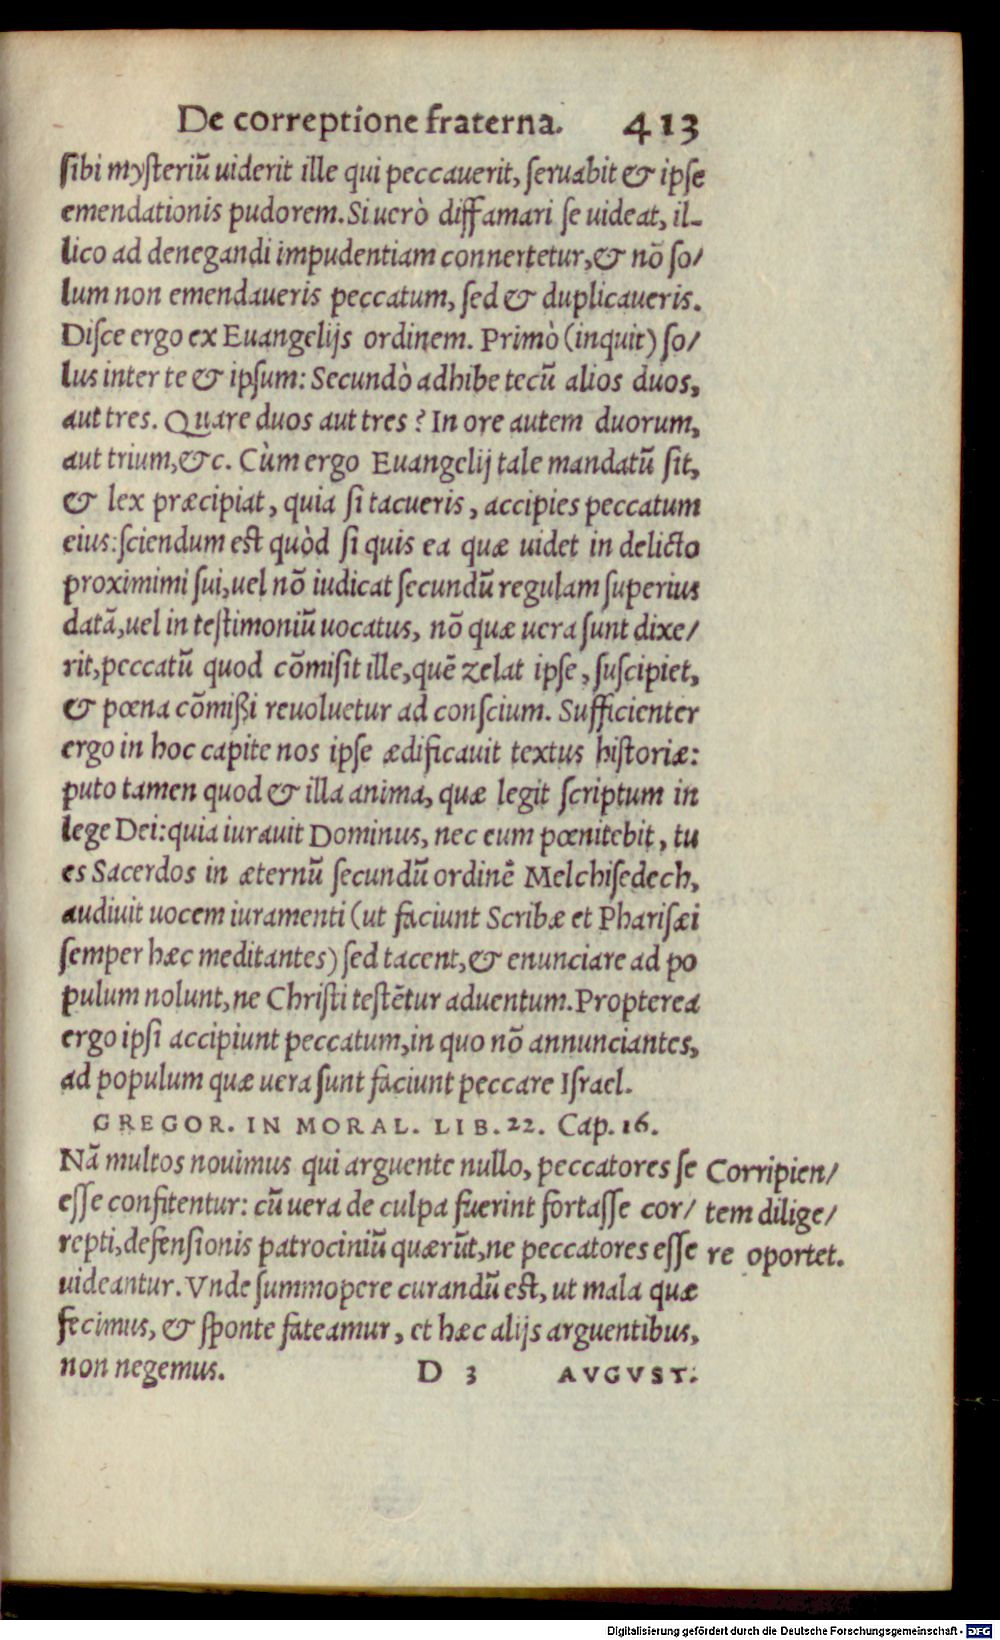 De correptione fraterna. 413
sibi mysteriũ uiderit ille qui peccauerit, seruabit & ipse
emendationis pudorem. Si uerò diffamari se uideat, il-
lico ad denegandi impudentiam connertetur, & nõ so/
lum non emendaueris peccatum, sed & duplicaueris.
Disce ergo ex Euangelijs ordinem. Primò (inquit) so/
lus inter te & ipsum: Secundò adhibe tecũ alios duos,
aut tres. Quare duos aut tres? In ore autem duorum,
aut trium, &c. Cùm ergo Euangelij tale mandatũ sit,
& lex præcipiat, quia si tacueris, accipies peccatum
eius: sciendum est quòd si quis ea quæ uidet in delicto
proximimi sui, uel nõ iudicat secundũ regulam superius
datã, uel in testimoniũ uocatus, nõ quæ uera sunt dixe/
rit, peccatũ quod cõmisit ille, quẽ zelat ipse, suscipiet,
& pœna cõmißi reuoluetur ad conscium. Sufficienter
ergo in hoc capite nos ipse ædificauit textus historiæ:
puto tamen quod & illa anima, quæ legit scriptum in
lege Dei: quia iurauit Dominus, nec eum pœnitebit, tu
es Sacerdos in æternũ secundũ ordinẽ Melchisedech,
audiuit uocem iuramenti (ut faciunt Scribæ et Pharisæi
semper hæc meditantes) sed tacent, & enunciare ad po
pulum nolunt, ne Christi testẽtur aduentum. Propterea
ergo ipsi accipiunt peccatum, in quo nõ annunciantes,
ad populum quæ uera sunt faciunt peccare Israel.
GREGOR. IN MORAL. LIB. 22. Cap. 16.
Nã multos nouimus qui arguente nullo, peccatores se
esse confitentur: cũ uera de culpa fuerint fortasse cor/
repti, defensionis patrociniũ quærũt, ne peccatores esse
uideantur. Vnde summopere curandũ est, ut mala quæ
fecimus, & sponte fateamur, et hæc alijs arguentibus,
non negemus.
Corripien/
tem dilige/
re oportet.
D 3 AVGVST.
Digitalisierung gefördert durch die Deutsche Forschungsgemeinschaft - DFG